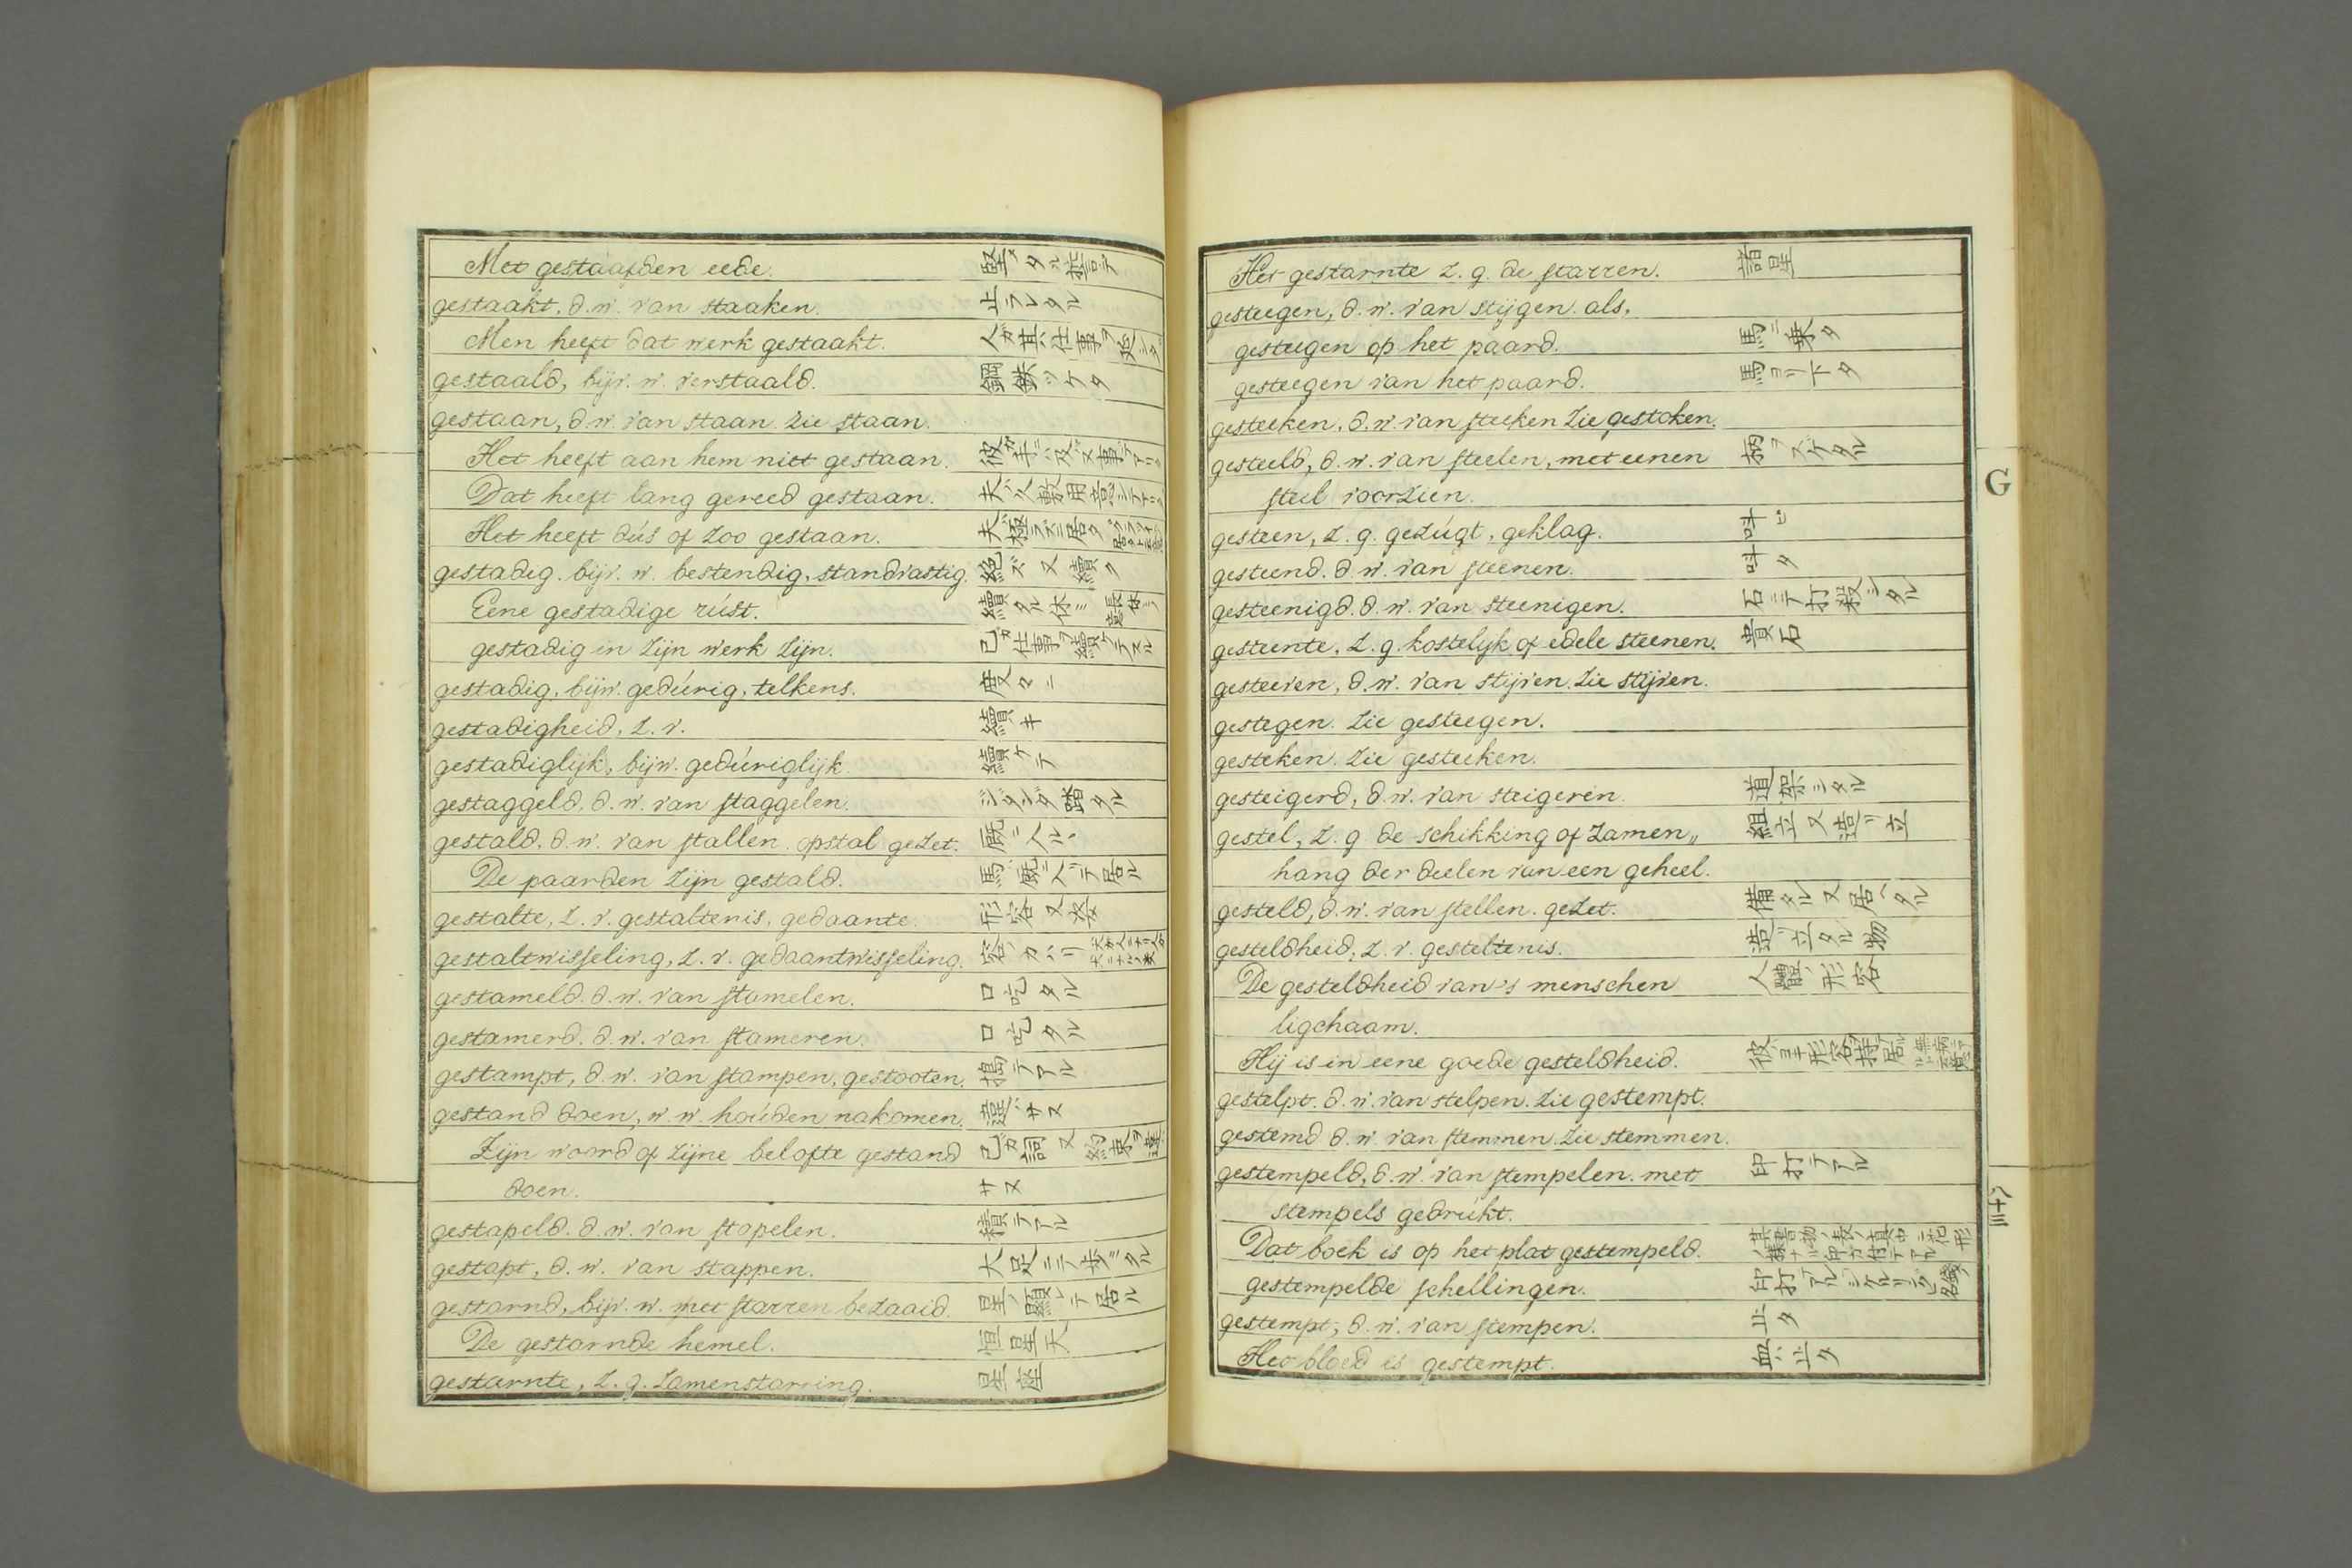 Met gestaafden eede. 堅メタル誓ニテ
gestaakt, d.w. van staaken. 止ラレタル
Men heeft dat werk gestaakt.
gestaald, bijv. w. verstaald. 鋼鉄ツケタ
gestaan, d.w. van staan. zie staan.
Het heeft aan hem niet gestaan.
Dat heeft lang gereed gestaan.
Het heeft dús of zoo gestaan.
gestadig. bijv. w. bestendig, standvastig. 絶ズ又續ク
Eene gestadige rúst.
gestadig in zijn werk zijn.
gestadig, bijw. gedúrig, telkens. 度々ニ
gestadigheid, z.v. 續キ
gestadiglijk, bijw. gedúriglijk 續ケテ
gestaggeld. d.w. van staggelen. ジダンダ踏タル
gestald. d.w. van stallen. opstal gezet. 厩ニ入ル
De paarden zijn gestald.
gestalte, z.v. gestaltenis, gedaante. 形容又姿
gestaltwisseling, z.v. gedaantwisseling.
gestameld. d.w. van stamelen. 口吃タル
gestamerd. d.w. van stameren. 口吃タル
gestampt, d.w. van stampen, gestooten. 搗テアル
gestand doen, w.w. hoúden nakomen. 違ハサヌ
Zijn woord of zijne belofte gestand
doen. サヌ
gestapeld. d.w. van stapelen. 積テアル
gestapt, d.w. van stappen. 大足ニテ歩ミタル
gestarnd, bijv. w. met starren bezaaid. 星ノ顕レテ居ル
De gestarnde hemel. 恒星天
gestarnte, z.g. zamenstarring. 星座
Het gestarnte z.g. de starren. 諸星
gesteegen, d.w. van stijgen. als,
gesteegen op het paard. 馬ニ乗タ
gesteegen van het paard. 馬ヨリ下タ
gesteeken, d.w. van steeken zie gestoken.
gesteeld, d.w. van steelen, met eenen 柄ヲスゲタル
steel voorzien.
gesteen, z.g. gezúgt, geklag. 呌ビ
gesteend. d.w. van steenen. 呌タ
gesteenigd. d.w. van steenigen. 石ニテ打殺シタル
gesteente, z.g. kostelijk of edele steenen. 貴石
gesteeven, d.w. van stijven. zie stijven.
gestegen. zie gesteegen.
gesteken. zie gesteeken.
gesteigerd, d.w. van steigeren.
gestel, z.g. de schikking of zamen„ 組立又造リ立
hang der deelen van een geheel.
gesteld, d.w. van stellen. gezet. 備タル又居ヘタル
gesteldheid, z.v. gesteltenis. 造リ立タル物
De gesteldheid van 's menschen 人體ノ形容
ligchaam.
Hij is in eene goede gesteldheid.
gestelpt. d.w. van stelpen. zie gestempt.
gestemd d.w. van stemmen. zie stemmen.
gestempeld, d.w. van stempelen. met 印打テアル
stempels gedrúkt.
Dat boek is op het plat gestempeld.
gestempelde schellingen.
gestempt, d.w. van stempen. 止タ
Het bloed is gestempt. 血ハ止タ
G